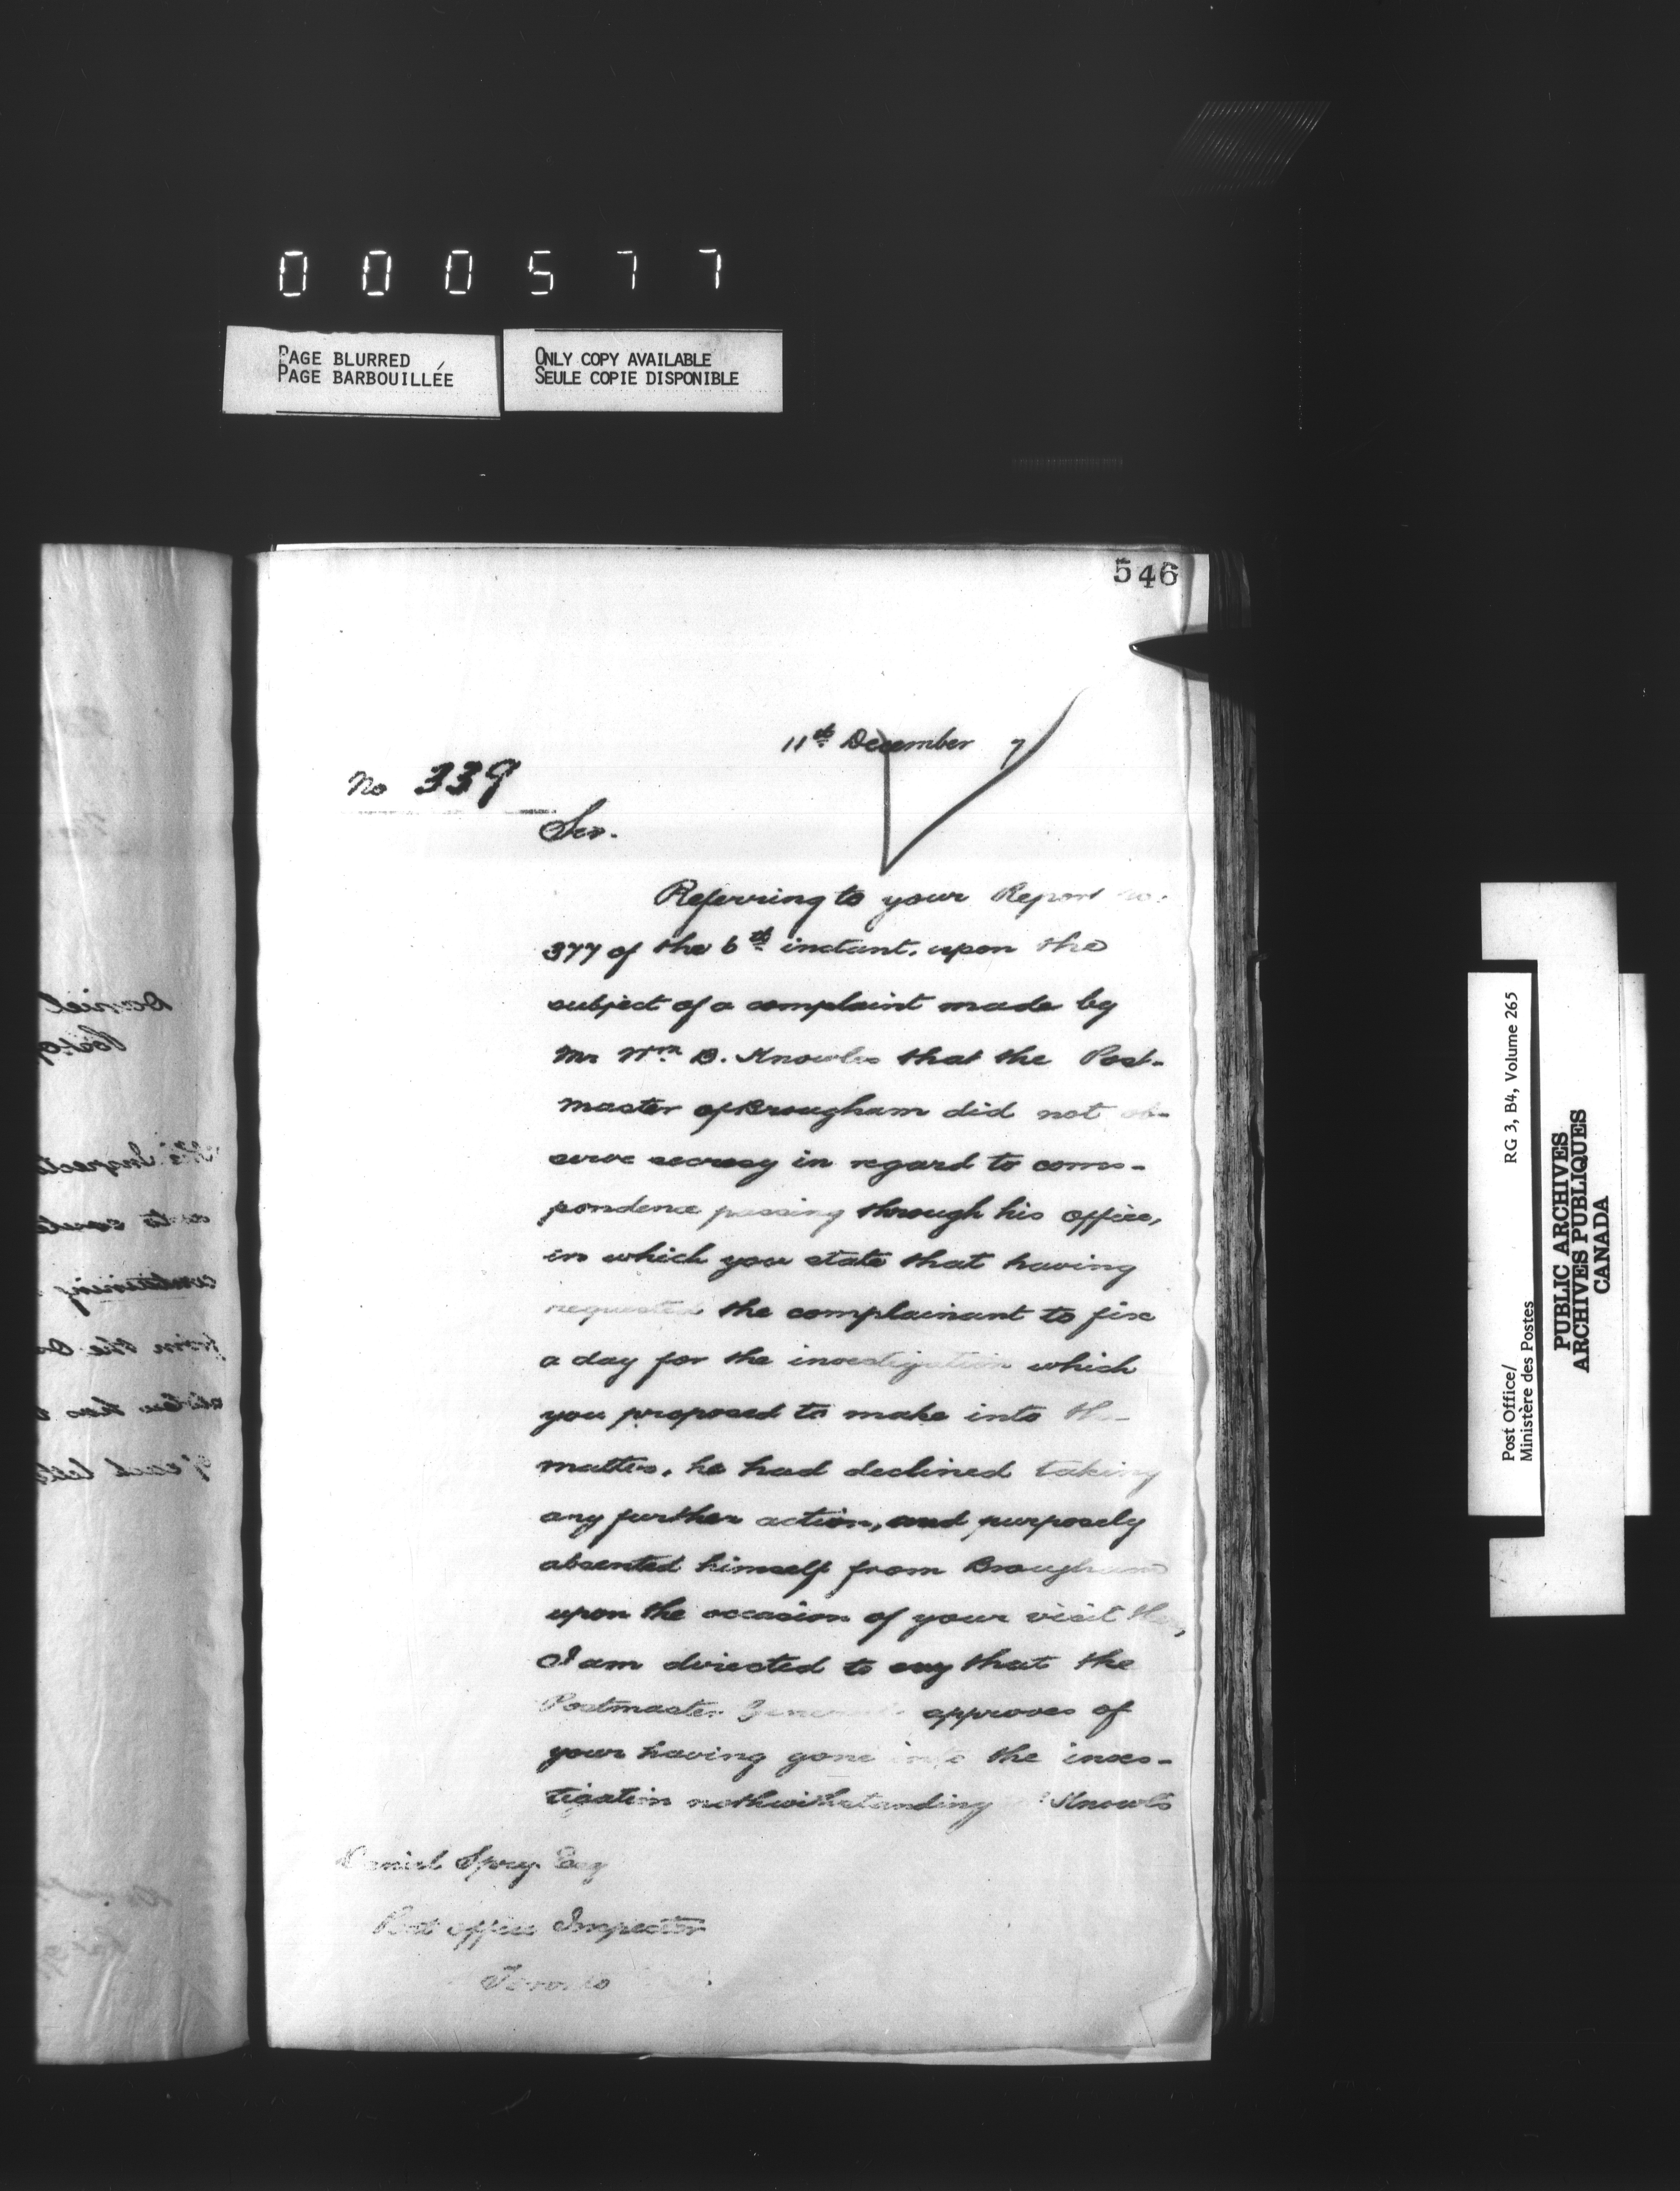 000577
PAGE BLURRED
PAGE BARBOUILLÉE
ONLY COPY AVAILABLE
SEULE COPIE DISPONIBLE
546
11th December 7
No 339
Sir.
Referring to your Report No.
377 of the 6th instant, upon the
subject of a complaint made by
Mr Wm B. Knowles that the Post-
master of Brougham did not ob-
serve secresy in regard to corres-
pondence passing through his office,
in which you state that having
requested the complainant to fix
a day for the investigation which
you proposed to make into the
matter, he had declined taking
any further action, and purposely
absented himself from Brougham
upon the occasion of your visit
I am directed to say that the
Postmaster General approves of
your having gone into the inves-
tigation nothwithstanding Knowles
Daniel Spry Esq
Post Office Inspector
Toronto
Post Office/
Ministère des Postes
RG 3, B4, Volume 265
PUBLIC ARCHIVES
ARCHIVES PUBLIQUES
CANADA